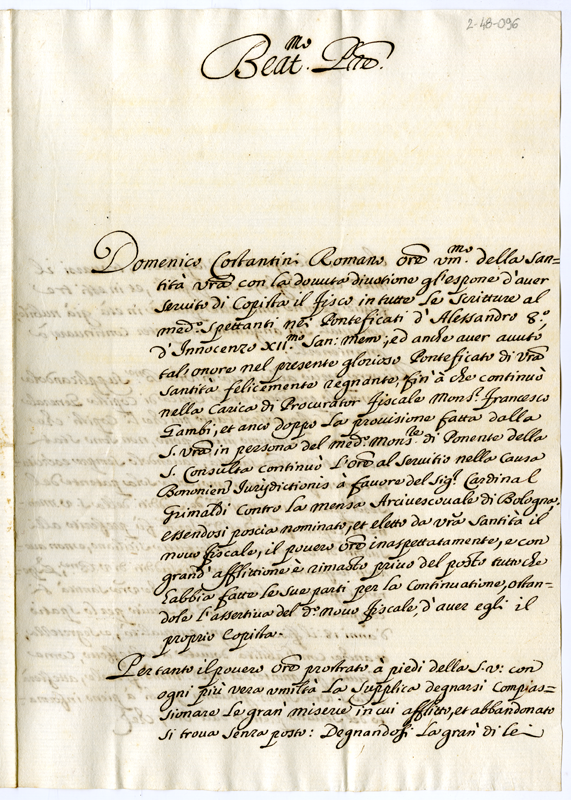 2-48-096
Beat.mo Pre.
Domenico Costantini Romano Ore vm.mo della San=
tità Vra con la dovuta divotione gl'espone d'aver
servito di Copista il fisco in tutte le Scritture al
med.o spettanti ne' Ponteficati d'Alessandro 8.o
d'Innocenzo XII.mo San: mem:, ed anche aver avuto
tal onore nel presente glorioso Ponteficato di Vra
Santità felicemente regnante, fin' à che continuò
nella Carica di Procurator fiscale Mons.r Francesco
Gambi, et anco doppo la provisione fatta dalla
S. Vra in persona del med.o Mons.re di Ponente della
S. Consulta continuò l'Ore al servitio nella Causa
Bononien Jurisdictionis à favore del Sig.r Cardinal
Grimaldi contro la mensa Arcivescovale di Bologna,
essendosi poscia nominato, et eletto da Vra Santità il
novo fiscale, il povero Ore inaspettatamente, e con
grand' afflittione è rimasto privo del posto tutto che
habbia fatte le sue parti per la Continuatione, ostan=
dole l'assertiva del d.o novo fiscale, d'aver egli il
proprio Copista.
Per tanto il povero Ore prostrato à piedi della S.V: con
ogni più vera umiltà la supplica degnarsi Compas=
sionare le gran' miserie in cui afflitto, et abbandonato
si trova senza posto: Degnandosi la gran' di lei